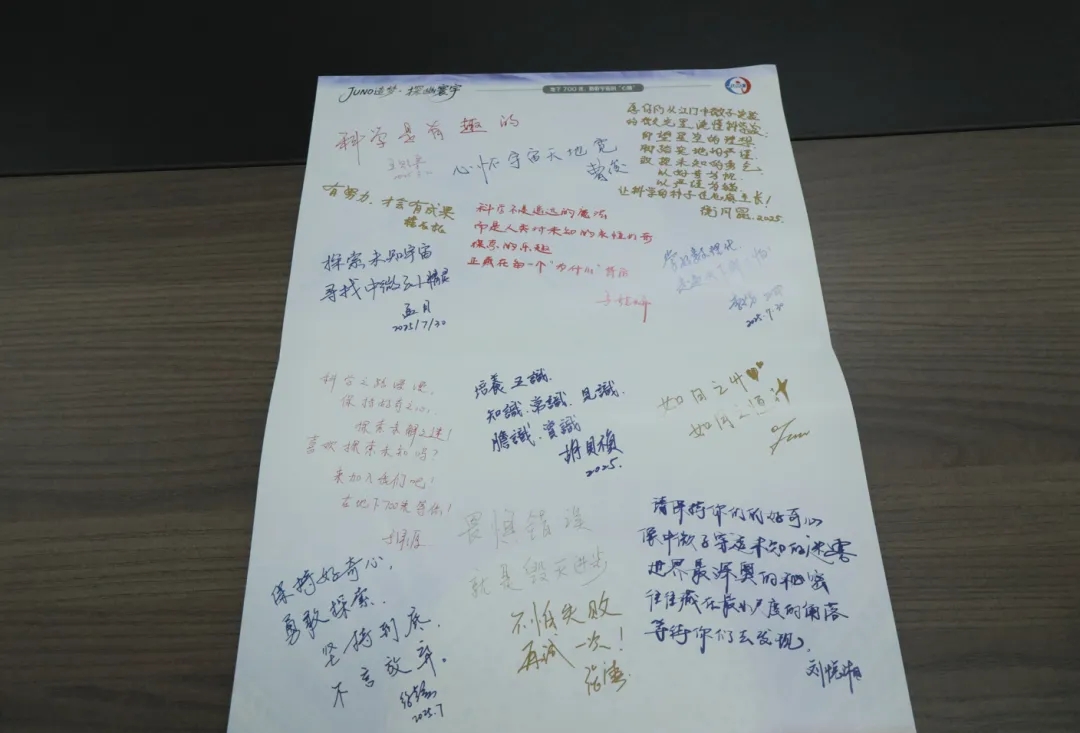 JUNO追梦·探幽寰宇
地下700米,
科学是有趣的
心怀宇宙天地宽
愿你们从江门中微子实验
的微光里,读懂科学家
仰望星空的理想
脚踏实地的严谨
改探未知的勇气
以好奇为帆
以严谨为锚
让科学的种子在心底生长!
2025.
有努力,才会有成果
科学不是遥远的魔法
而是人类对未知的永恒好奇
探索的乐趣
正藏在每一个"为什么"背后
探索未知宇宙
寻找中微子小精灵
孟月
2025/7/30
学好数理化
走遍天下都不怕
2025.7.30
科学之路漫漫,
保持好奇之心,
探索未解之谜!
喜欢探索未知吗?
来加入我们吧!
在地下700米等你!
培養五識.
知識.常識.見識.
膽識.賞識
胡貝楨
2025.
如日之升
如月之恒
畏惧错误
就是毁灭进步
不怕失败
再试一次!
保持好奇心,
勇敢探索.
坚持到底.
不言放弃.
2025.7
请保持你们的好奇心
像中微子穿透未知的迷雾
世界最深奥的秘密
往往藏在最小尺度的角落
等待你们去发现。
刘悦湘